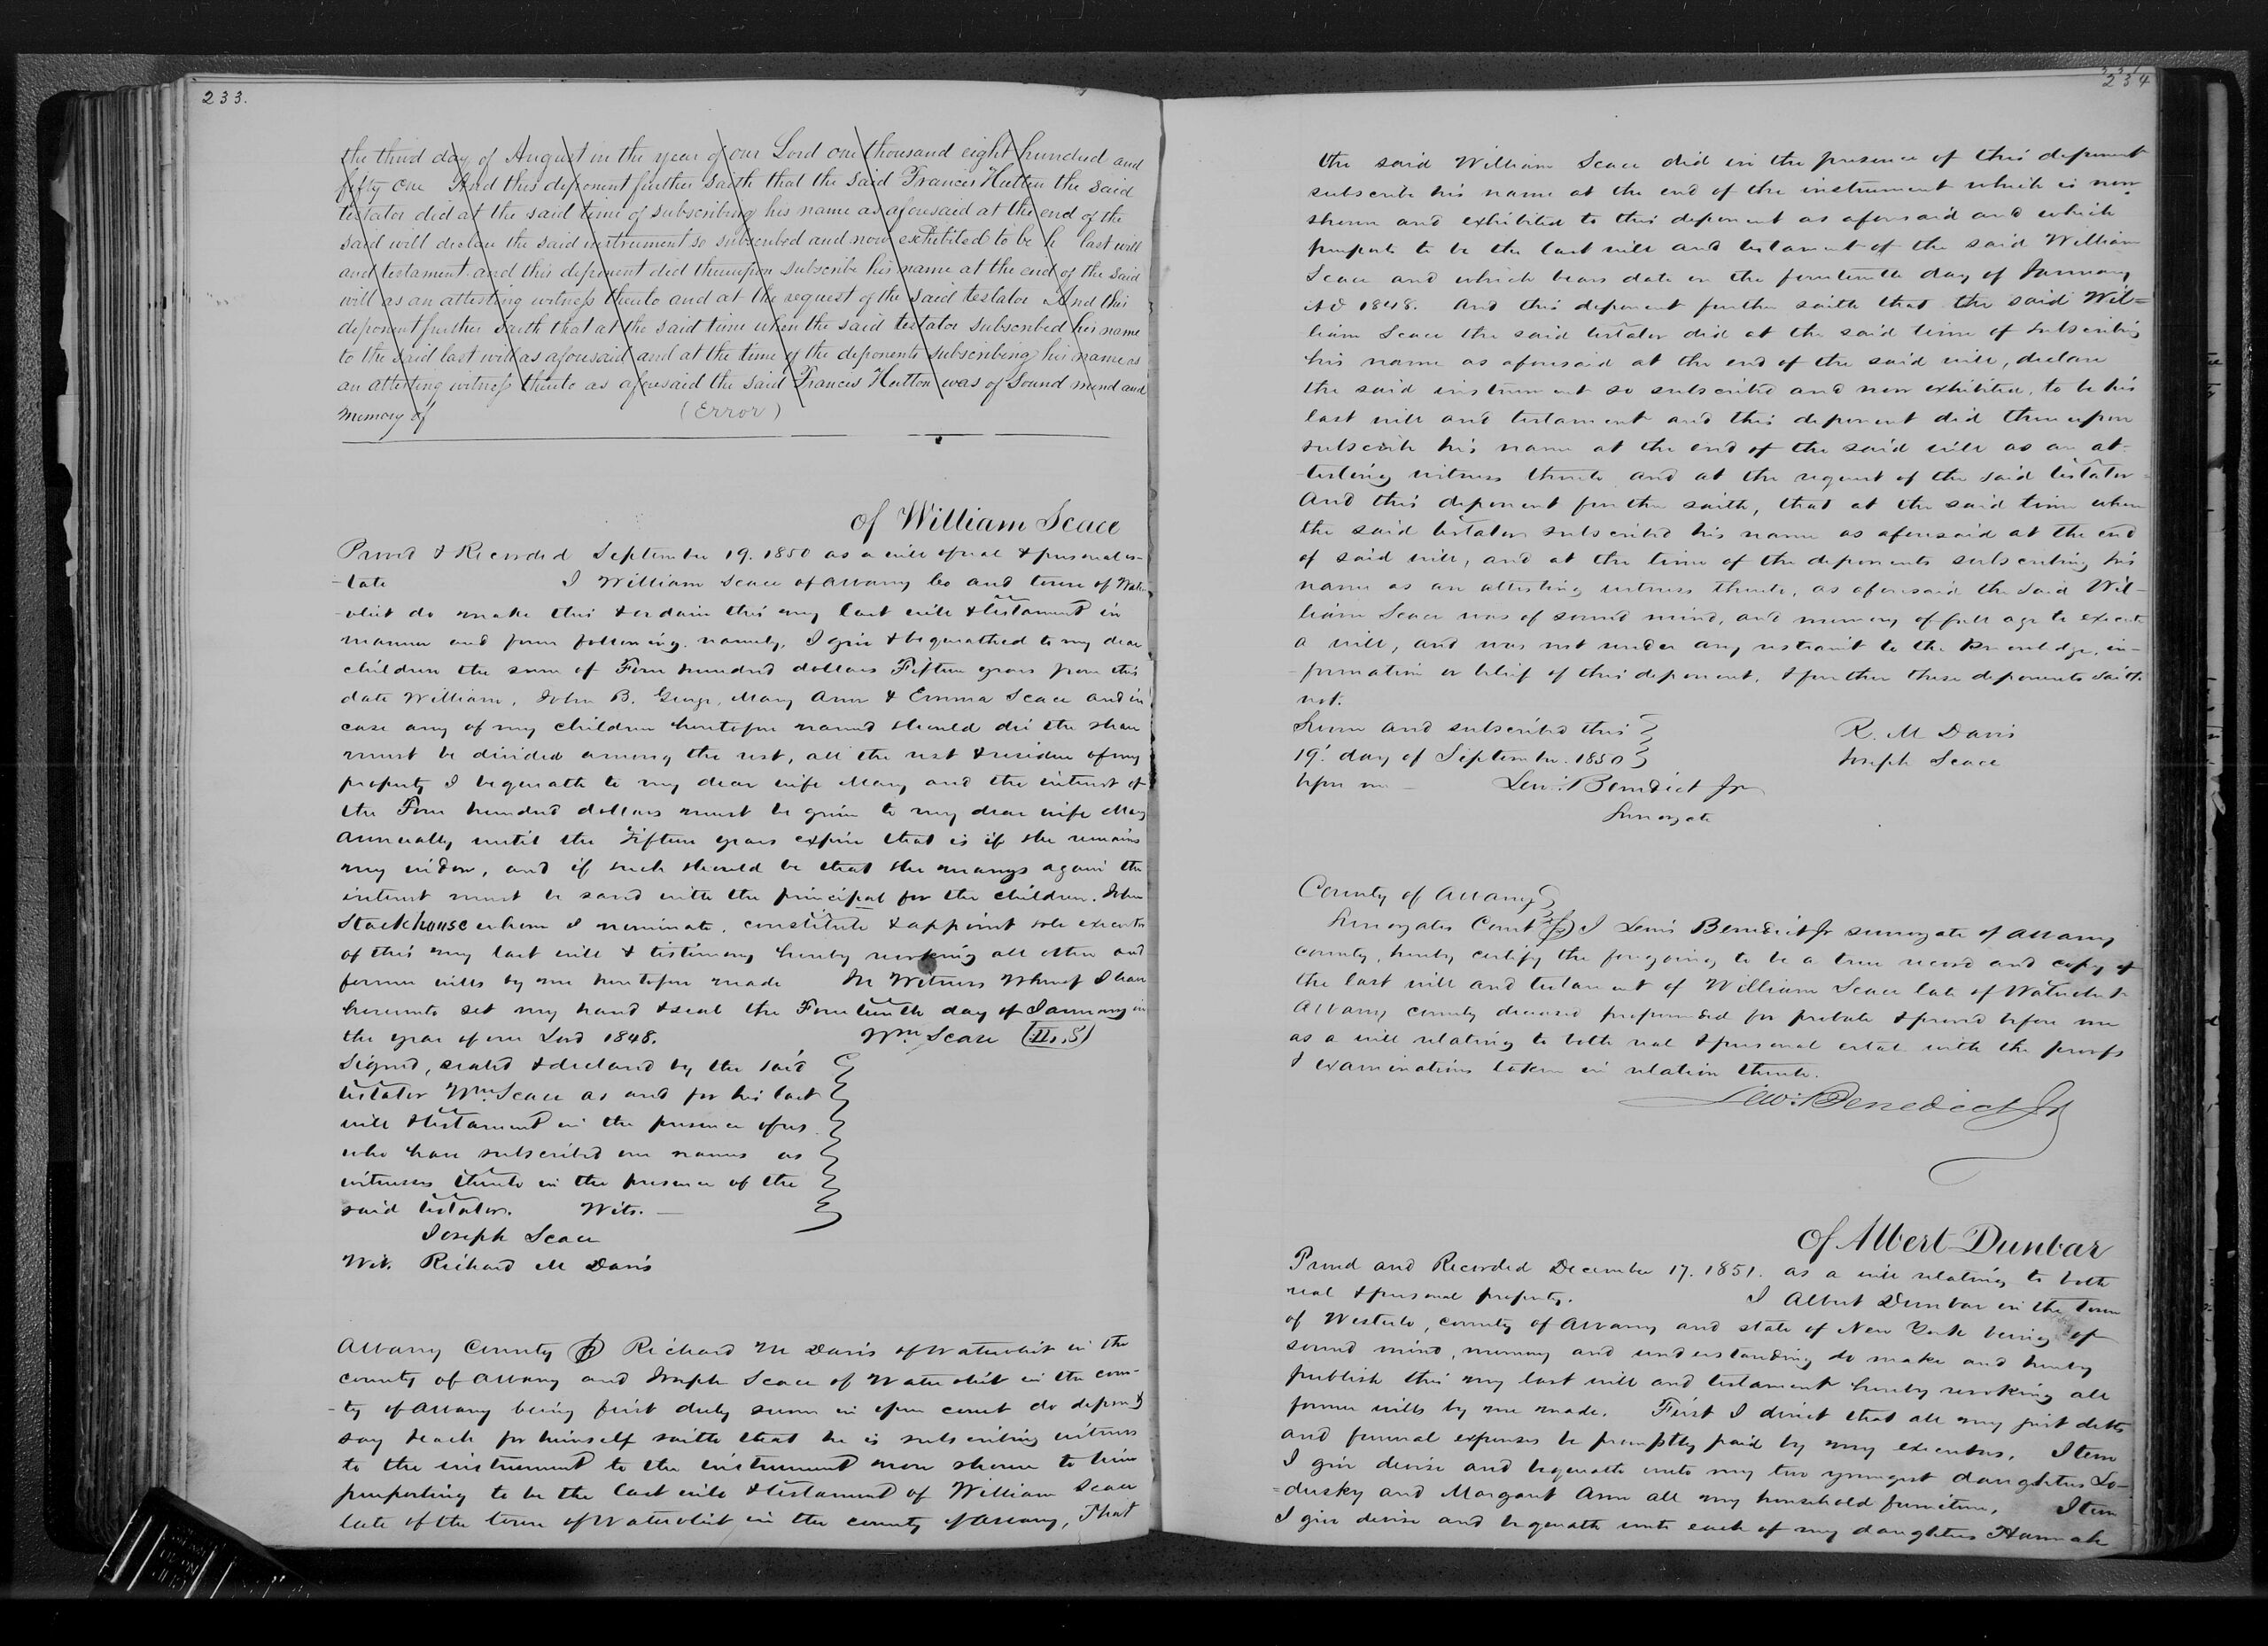 233.
the third day of August in the year of our Lord one thousand eight hundred and
fifty one And this deponent further saith that the said Francis Hutton the said
testator did at the said time of subscribing his name as aforesaid at the end of the
said will declare the said instrument so subscribed and now exhibited to be h last will
and testament and this deponent did thereupon subscribe his name at the end of the said
will as an attesting witness thereto and at the request of the said testator And this
deponent further saith that at the said time when the said testator subscribed his name
to the said last will as aforesaid and at the time of the deponents subscribing his name as
an attesting witness thereto as aforesaid the said Francis Hutton was of sound mind and
memory of (Error)
of William Scace
Proved & Recorded September 19. 1850 as a will of real & personal es-
-tate I William Scace of Albany Co and town of Water-
-vliet do make this & ordain this my last will & testament in
manner and form following. namely, I give & bequeathed to my dear
children the sum of Four hundred dollars Fifteen years from this
date William, John B. George, Mary Ann & Emma Scace and in
case any of my children heretofore named should die the share
must be divided among the rest, all the rest & residue of my
property I bequeath to my dear wife Mary and the interest of
the Four hundred dollars must be given to my dear wife Mary
Annually until the Fifteen years expire that is if she remains
my widow, and if such should be that she marrys again the
interest must be saved with the principal for the children. John
Stackhouse whom I nominate, constitute & appoint sole executor
of this my last will & testimony hereby revoking all other and
former wills by me heretofore made In Witness Whereof I have
hereunto set my hand & seal the Fourteenth day of January in
the year of our Lord 1848. Wm Scace (L.S)
Signed, sealed & declared by the said
testator Wm Scace as and for his last
will & testament in the presence of us
who have subscribed our names as
witnesses thereto in the presence of the
said testator. Wits. —
Joseph Scace
Wit. Richard M Davis
Albany County SS Richard M Davis of Watervliet in the
county of Albany and Joseph Scace of Watervliet in the coun-
-ty of Albany being first duly sworn in open court do depose &
say & each for himself saith that he is subscribing witness
to the instrument to the instrument now shown to him
purporting to be the last will & testament of William Scace
late of the town of Watervliet in the county of Albany, That
234
the said William Scace did in the presence of this deponent
subscribe his name at the end of the instrument which is now
shown and exhibited to this deponent as aforesaid and which
purports to be the last will and testament of the said William
Scace and which bears date on the fourteenth day of January
A D 1848. And this deponent further saith that the said Wil=
liam Scace the said testator did at the said time of subscribing
his name as aforesaid at the end of the said will, declare
the said instrument so subscribed and now exhibited, to be his
last will and testament and this deponent did thereupon
subscribe his name at the end of the said will as an at-
-testing witness thereto and at the request of the said testator-
And this deponent further saith, that at the said time when
the said testator subscribed his name as aforesaid at the end
of said will, and at the time of the deponents subscribing his
name as an attesting witness thereto, as aforesaid the said Wil-
liam Scace was of sound mind, and memory of full age to execute
a will, and was not under any restraint to the knowledge, in-
-formation or belief of this deponent, & further these deponents saith
not.
Sworn and subscribed this R. M Davis
19' day of September. 1850 Joseph Scace
before me — Lew: Benedict Jr
Surrogate
County of Albany
Surrogates Court SS I Lewis Benedict Jr surrogate of Albany
county, hereby certify the foregoing to be a true record and copy of
the last will and testament of William Scace late of Watervliet
Albany county deceased propounded for probate & proved before me
as a will relating to both real & personal estate with the proofs
& examinations taken in relation thereto.
Lew: Benedict Jr
Of Albert Dunbar
Proved and Recorded December 17. 1851. as a will relating to both
real & personal property. I Albert Dunbar in the town
of Westerlo, county of Albany and state of New York being of
sound mind, memory and understanding do make and hereby
publish this my last will and testament hereby revoking all
former wills by me made. First I direct that all my just debts
and funeral expenses be promptly paid by my executors, Item
I give devise and bequeath unto my two youngest daughters Lo-
=dusky and Margaret Ann all my household furniture, Item
I give devise and bequeath unto each of my daughters Hannah